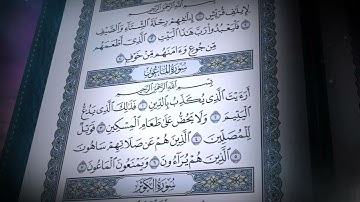 لِإِيلَٰفِ قُرَيْشٍ ۝ إِۦلَٰفِهِمْ رِحْلَةَ ٱلشِّتَآءِ وَٱلصَّيْفِ
فَلْيَعْبُدُوا۟ رَبَّ هَٰذَا ٱلْبَيْتِ ۝ ٱلَّذِىٓ أَطْعَمَهُم
مِّن جُوعٍ وَءَامَنَهُم مِّنْ خَوْفٍۭ
سُورَةُ المَاعُونِ
بِسْمِ ٱللَّهِ ٱلرَّحْمَٰنِ ٱلرَّحِيمِ
أَرَءَيْتَ ٱلَّذِى يُكَذِّبُ بِٱلدِّينِ ۝ فَذَٰلِكَ ٱلَّذِى يَدُعُّ
ٱلْيَتِيمَ ۝ وَلَا يَحُضُّ عَلَىٰ طَعَامِ ٱلْمِسْكِينِ ۝ فَوَيْلٌ
لِّلْمُصَلِّينَ ۝ ٱلَّذِينَ هُمْ عَن صَلَاتِهِمْ سَاهُونَ
۝ ٱلَّذِينَ هُمْ يُرَآءُونَ ۝ وَيَمْنَعُونَ ٱلْمَاعُونَ ۝
سُورَةُ الكَوْثَرِ